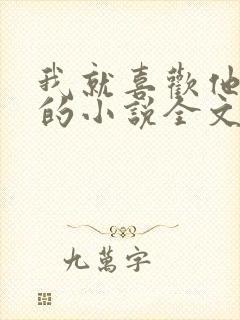 我就喜歡他
的小說全文
九萬字